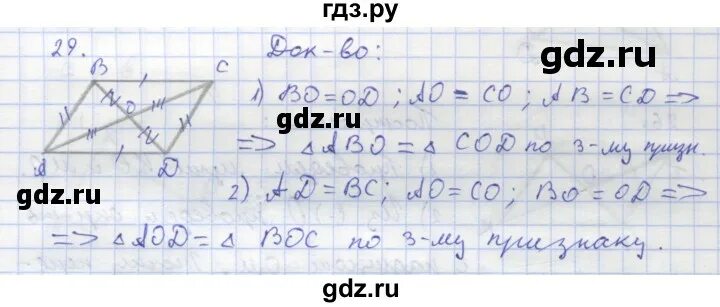 гдз.ру
29. Док-во:
B C
1) BO = OD; AO = CO; AB = CD =>
O
=> △ ABO = △ COD по 3-му призн.
A D
2) AD = BC; AO = CO; BO = OD =>
=> △ AOD = △ BOC по 3-му признаку.
gdz.ru
gdz.ru
gdz.ru
gdz.ru
gdz.ru